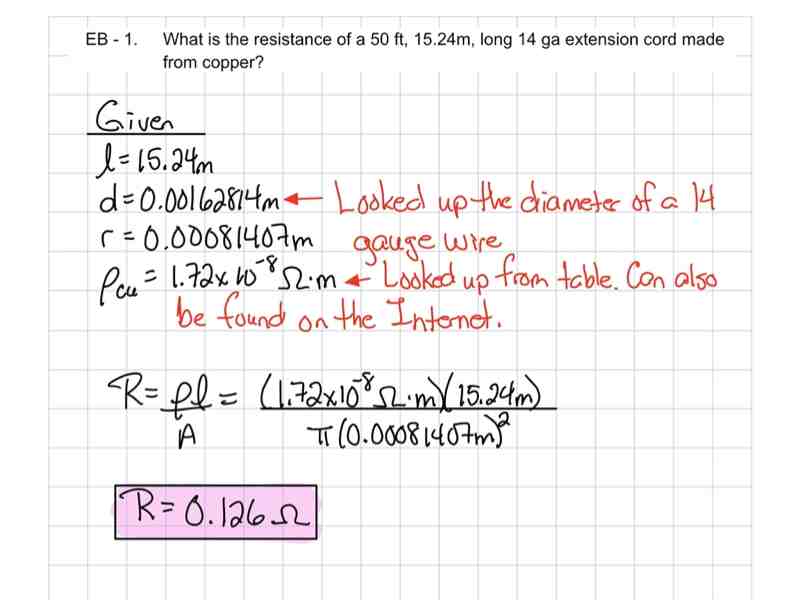 EB - 1. What is the resistance of a 50 ft, 15.24m, long 14 ga extension cord made
from copper?
Given
l = 15.24m
d = 0.00162814m ← Looked up the diameter of a 14
r = 0.00081407m gauge wire
ρcu = 1.72x10⁻⁸ Ω·m ← Looked up from table. Can also
be found on the Internet.
R = ρl = (1.72x10⁻⁸ Ω·m)(15.24m)
A π(0.00081407m)²
R = 0.126 Ω